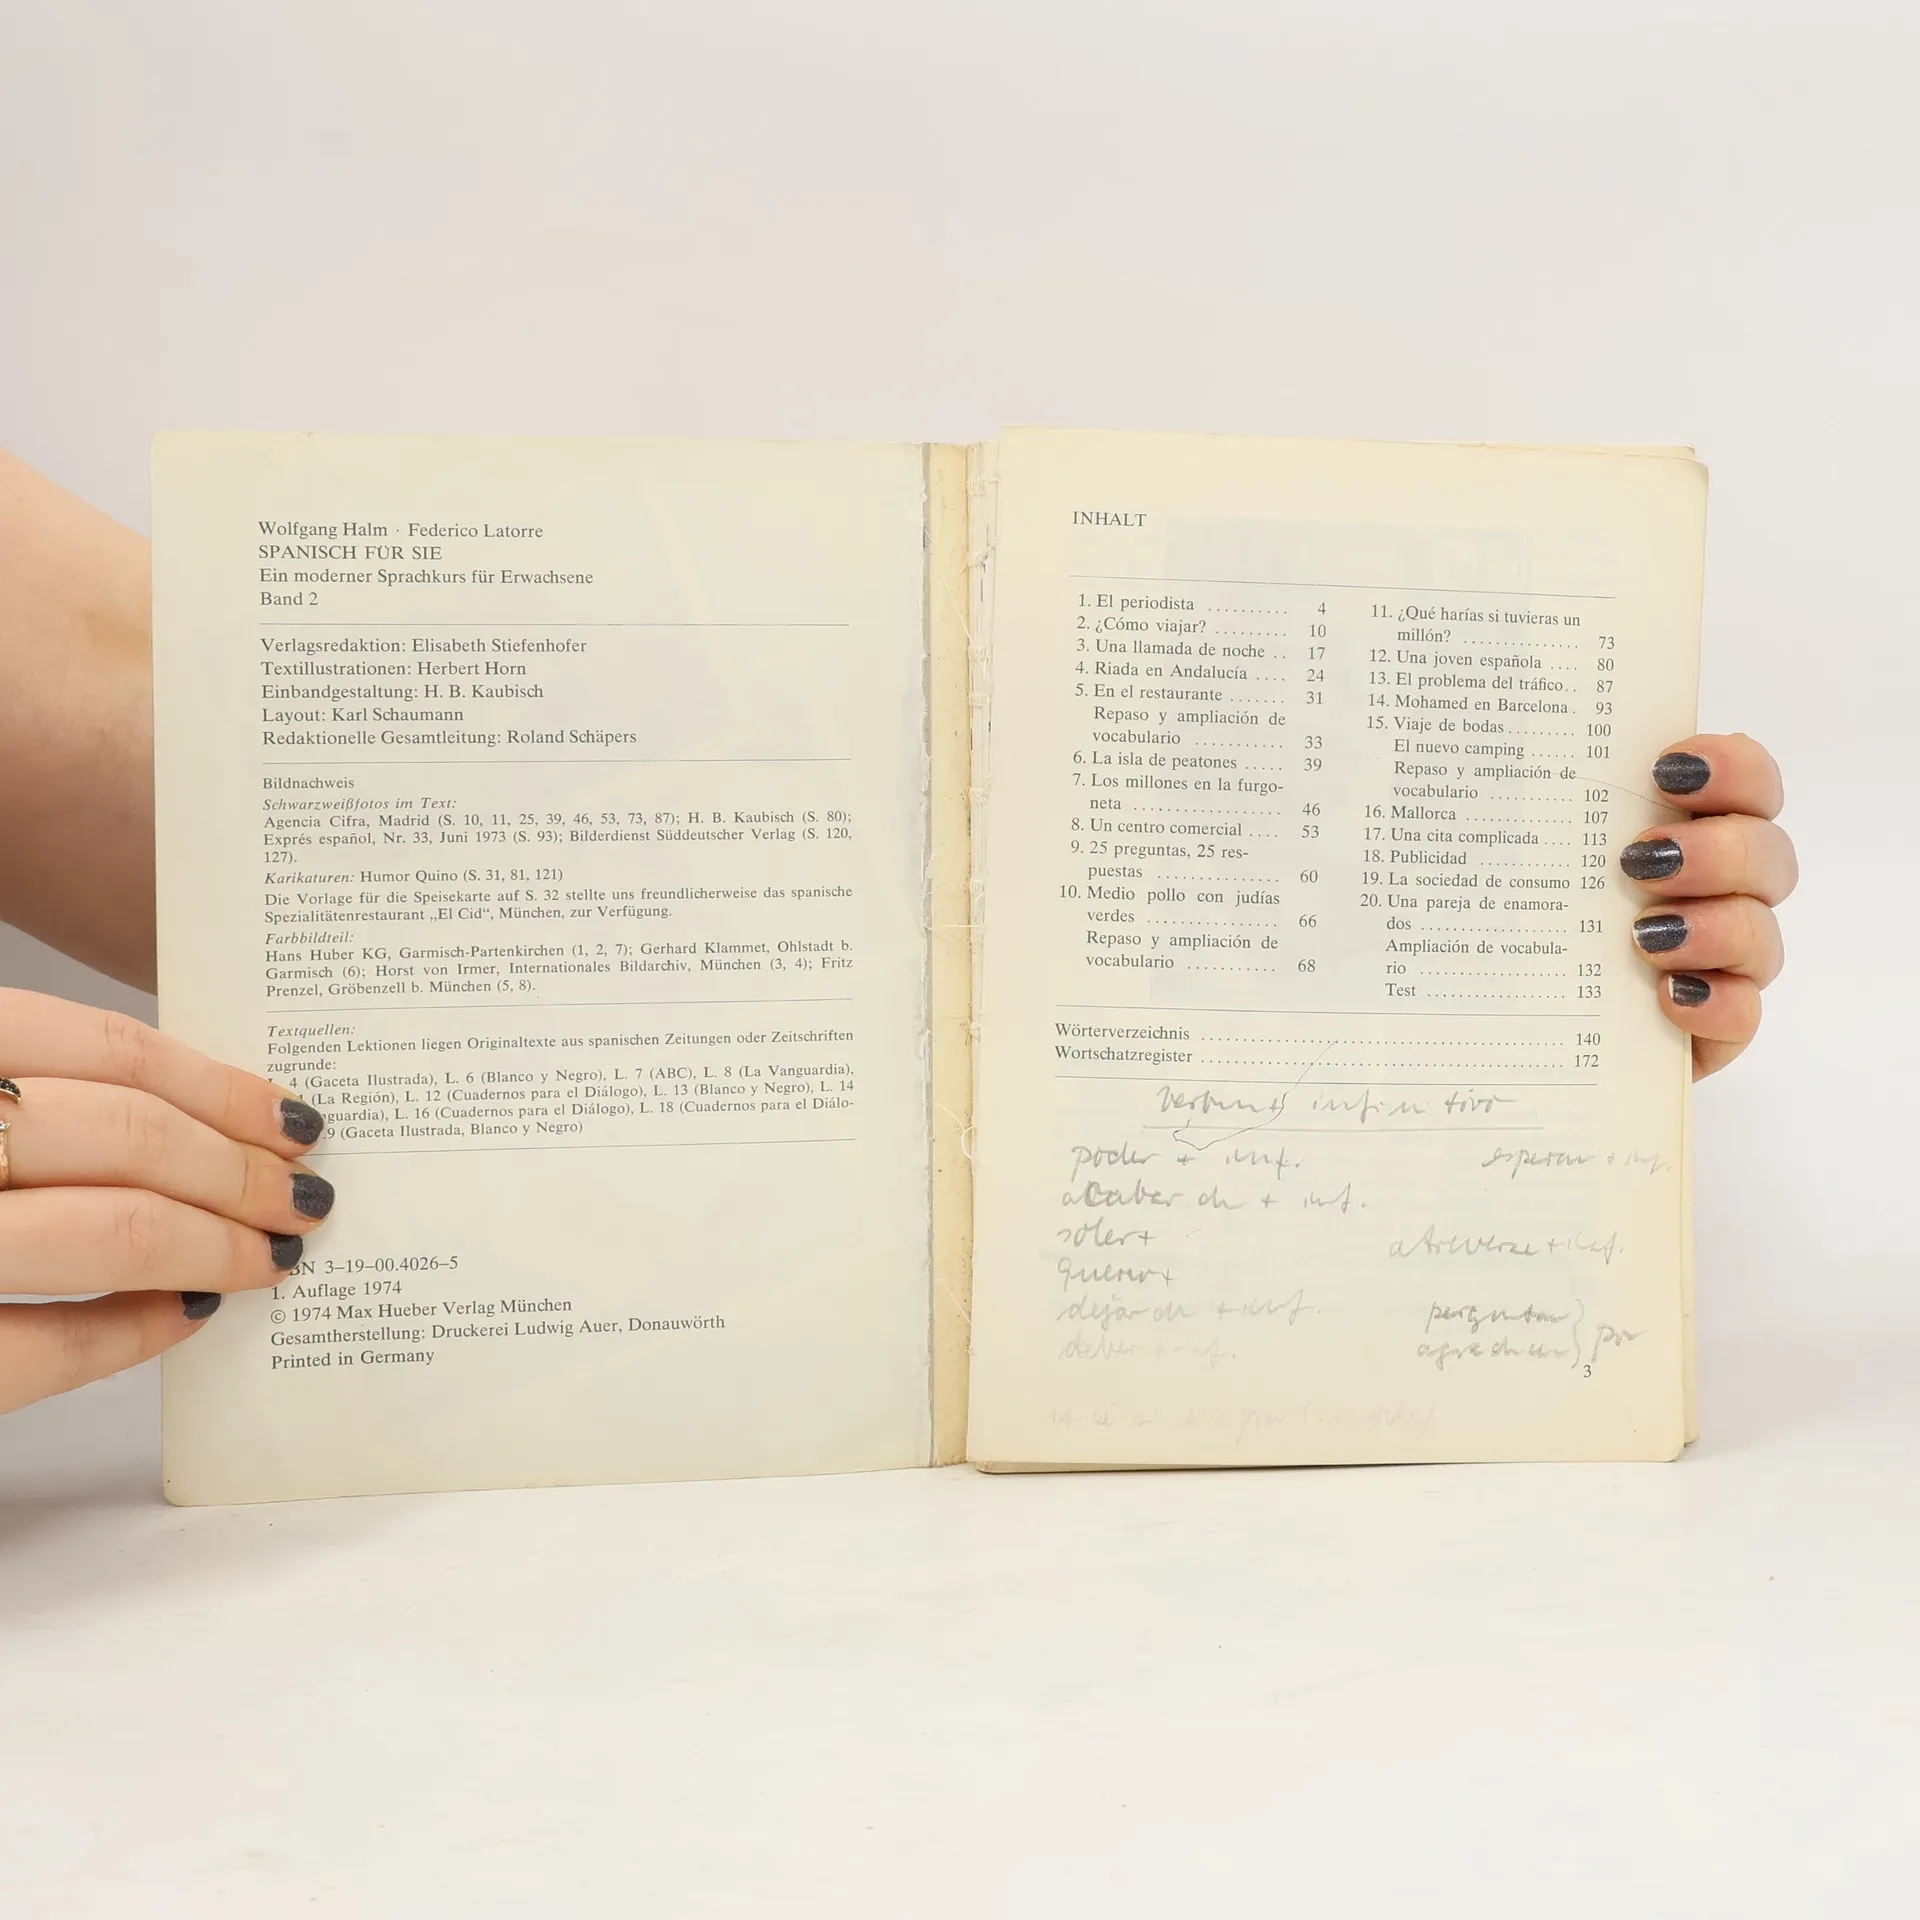 Wolfgang Halm · Federico Latorre
SPANISCH FÜR SIE
Ein moderner Sprachkurs für Erwachsene
Band 2
Verlagsredaktion: Elisabeth Stiefenhofer
Textillustrationen: Herbert Horn
Einbandgestaltung: H. B. Kaubisch
Layout: Karl Schaumann
Redaktionelle Gesamtleitung: Roland Schäpers
Bildnachweis
Schwarzweißfotos im Text:
Agencia Cifra, Madrid (S. 10, 11, 25, 39, 46, 53, 73, 87); H. B. Kaubisch (S. 80);
Exprés español, Nr. 33, Juni 1973 (S. 93); Bilderdienst Süddeutscher Verlag (S. 120,
127).
Karikaturen: Humor Quino (S. 31, 81, 121)
Die Vorlage für die Speisekarte auf S. 32 stellte uns freundlicherweise das spanische
Spezialitätenrestaurant „El Cid“, München, zur Verfügung.
Farbbildteil:
Hans Huber KG, Garmisch-Partenkirchen (1, 2, 7); Gerhard Klammet, Ohlstadt b.
Garmisch (6); Horst von Irmer, Internationales Bildarchiv, München (3, 4); Fritz
Prenzel, Gröbenzell b. München (5, 8).
Textquellen:
Folgenden Lektionen liegen Originaltexte aus spanischen Zeitungen oder Zeitschriften
zugrunde:
4 (Gaceta Ilustrada), L. 6 (Blanco y Negro), L. 7 (ABC), L. 8 (La Vanguardia),
(La Región), L. 12 (Cuadernos para el Diálogo), L. 13 (Blanco y Negro), L. 14
nguardia), L. 16 (Cuadernos para el Diálogo), L. 18 (Cuadernos para el Diálo-
9 (Gaceta Ilustrada, Blanco y Negro)
BN 3–19–00.4026–5
1. Auflage 1974
© 1974 Max Hueber Verlag München
Gesamtherstellung: Druckerei Ludwig Auer, Donauwörth
Printed in Germany
INHALT
1. El periodista .......... 4
2. ¿Cómo viajar? ......... 10
3. Una llamada de noche .. 17
4. Riada en Andalucía .... 24
5. En el restaurante ....... 31
Repaso y ampliación de
vocabulario ........... 33
6. La isla de peatones ..... 39
7. Los millones en la furgo-
neta ................ 46
8. Un centro comercial .... 53
9. 25 preguntas, 25 res-
puestas .............. 60
10. Medio pollo con judías
verdes ............... 66
Repaso y ampliación de
vocabulario ........... 68
11. ¿Qué harías si tuvieras un
millón? .............. 73
12. Una joven española .... 80
13. El problema del tráfico.. 87
14. Mohamed en Barcelona . 93
15. Viaje de bodas ......... 100
El nuevo camping ...... 101
Repaso y ampliación de
vocabulario ........... 102
16. Mallorca .............. 107
17. Una cita complicada .... 113
18. Publicidad ............ 120
19. La sociedad de consumo 126
20. Una pareja de enamora-
dos .................. 131
Ampliación de vocabula-
rio .................. 132
Test ................. 133
Wörterverzeichnis .......... 140
Wortschatzregister .......... 172
infinitivo
poder + inf.
esperar + inf.
acabar de + inf.
soler +
atreverse + inf.
querer +
dejar de + inf.
deber + inf.
por
3